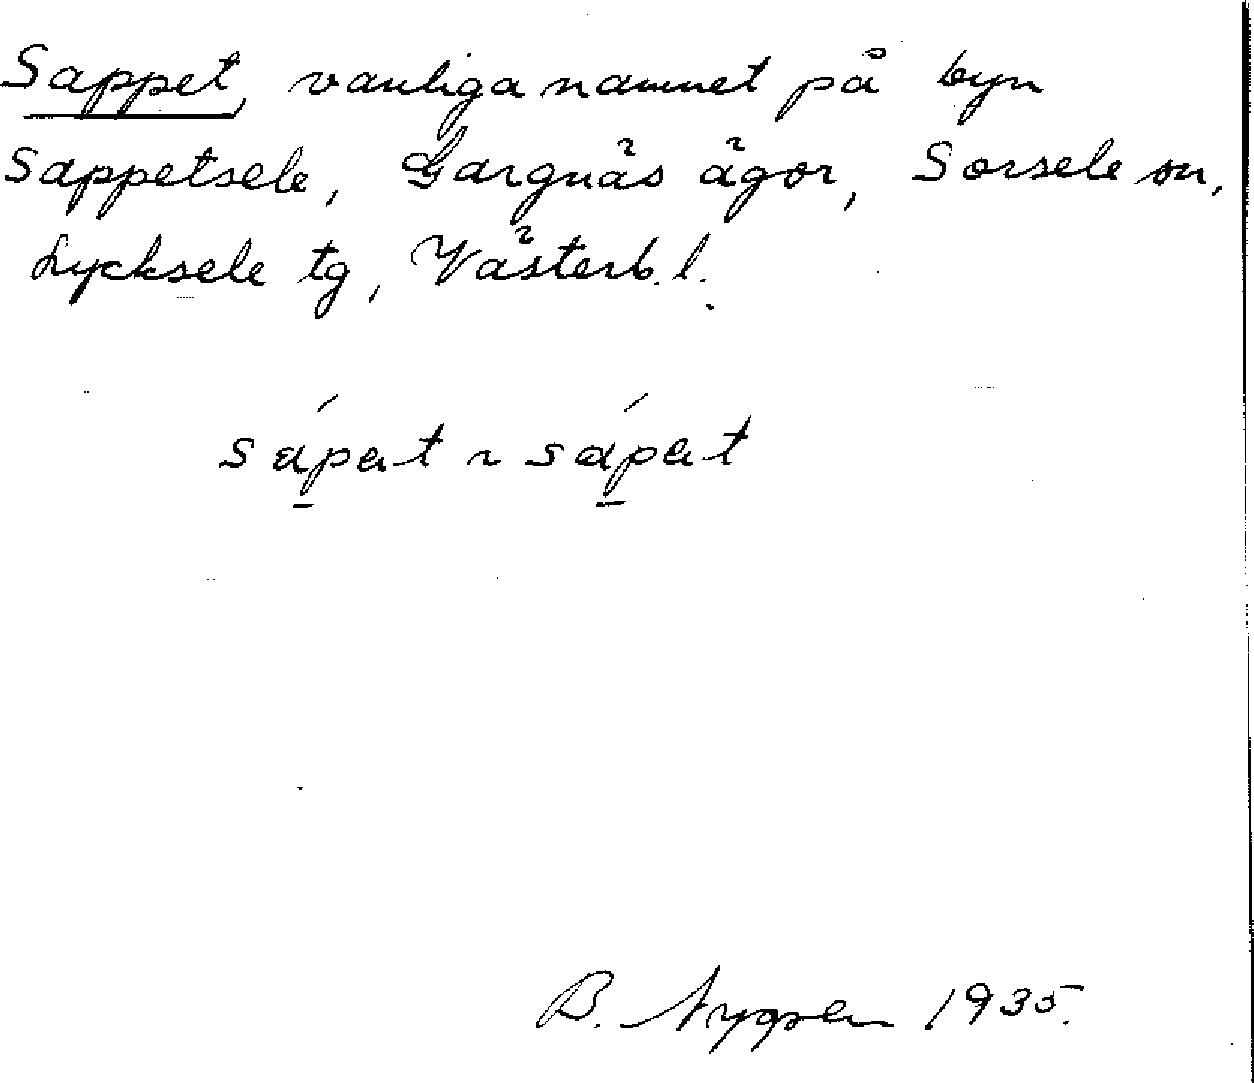 Sappet, vanliga namnet på byn
Sappetsele, Gargnäs ägor, Sorsele sn,
Lycksele tg, Västerb. l.
sápat ~ sápat
B. Nygren 1935.